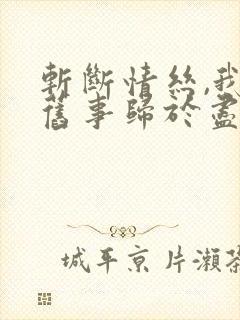 斬斷情絲,我
舊事歸於盡
城平京片瀨